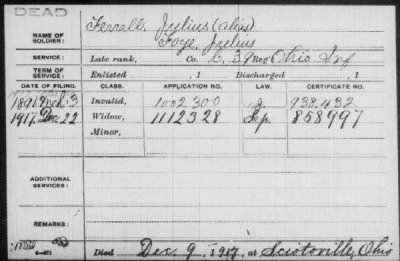 DEAD
NAME OF SOLDIER: Ferrall, Julius (alias)
Foye, Julius
SERVICE: Late rank, Co. C, 39 Reg't Ohio Inf
TERM OF SERVICE: Enlisted , 1 Discharged , 1
DATE OF FILING. CLASS. APPLICATION NO. LAW. CERTIFICATE NO.
1891 Mch. 3 Invalid, 1002300 J. 938.432
1917. Dec 22 Widow, 1112328 858997
Minor,
ADDITIONAL SERVICES:
REMARKS:
Died Dec. 9, 1917, at Sciotoville, Ohio